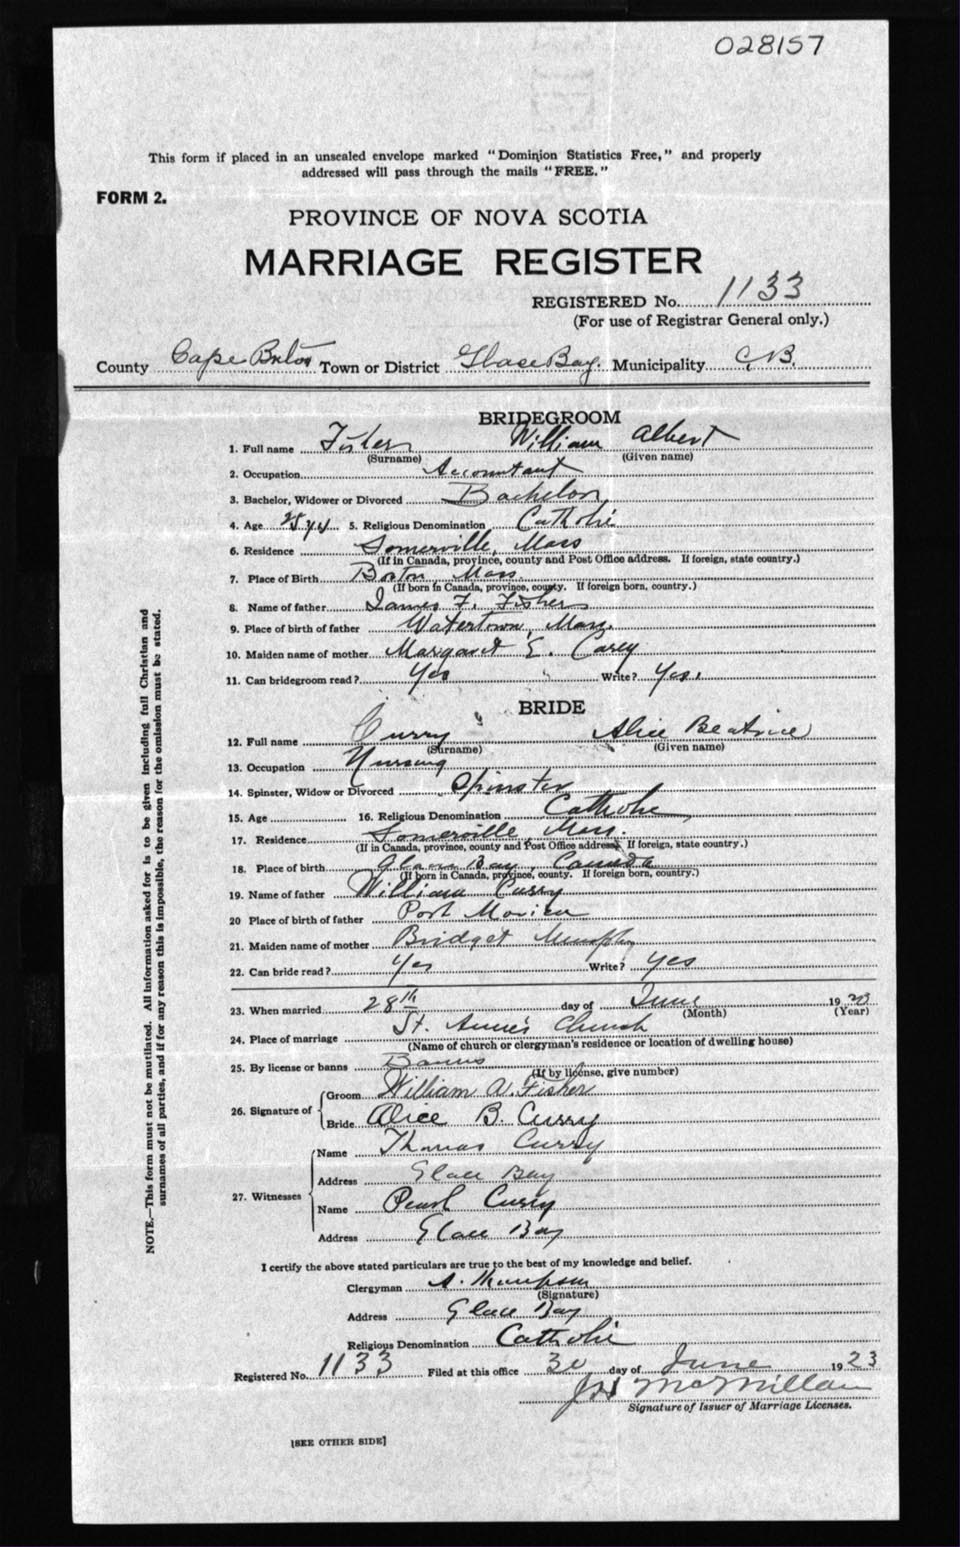 028157
This form if placed in an unsealed envelope marked "Dominion Statistics Free," and properly
addressed will pass through the mails "FREE."
FORM 2.
PROVINCE OF NOVA SCOTIA
MARRIAGE REGISTER
REGISTERED No. 1133
(For use of Registrar General only.)
County Cape Breton Town or District Glace Bay. Municipality C.B.
BRIDEGROOM
1. Full name Fisher William Albert
(Surname) (Given name)
2. Occupation Accountant
3. Bachelor, Widower or Divorced Bachelor
4. Age 25 5. Religious Denomination Catholic
6. Residence Somerville, Mass
(If in Canada, province, county and Post Office address. If foreign, state country.)
7. Place of Birth Boston Mass.
(If born in Canada, province, county. If foreign born, country.)
8. Name of father James F. Fisher
9. Place of birth of father Watertown, Mass.
10. Maiden name of mother Margaret E. Carey
11. Can bridegroom read? Yes Write? Yes.
BRIDE
12. Full name Curry Alice Beatrice
(Surname) (Given name)
13. Occupation Nursing
14. Spinster, Widow or Divorced Spinster
15. Age 16. Religious Denomination Catholic
17. Residence Somerville, Mass.
(If in Canada, province, county and Post Office address. If foreign, state country.)
18. Place of birth Glace Bay Canada
(If born in Canada, province, county. If foreign born, country.)
19. Name of father William Curry
20 Place of birth of father Port Morien
21. Maiden name of mother Bridget
22. Can bride read? Yes Write? Yes
23. When married 28th day of June 1923
(Month) (Year)
24. Place of marriage St. Anne's Church
(Name of church or clergyman's residence or location of dwelling house)
25. By license or banns Banns
(If by license, give number)
26. Signature of
Groom William A. Fisher
Bride Alice B. Curry
27. Witnesses
Name Thomas Curry
Address Glace Bay
Name Pearl Curry
Address Glace Bay
I certify the above stated particulars are true to the best of my knowledge and belief.
Clergyman A. Thompson
(Signature)
Address Glace Bay
Religious Denomination Catholic
Registered No. 1133 Filed at this office 30 day of June 1923
McMillan
Signature of Issuer of Marriage Licenses.
[SEE OTHER SIDE]
NOTE.—This form must not be mutilated. All information asked for is to be given including full Christian and
surnames of all parties, and if for any reason this is impossible, the reason for the omission must be stated.